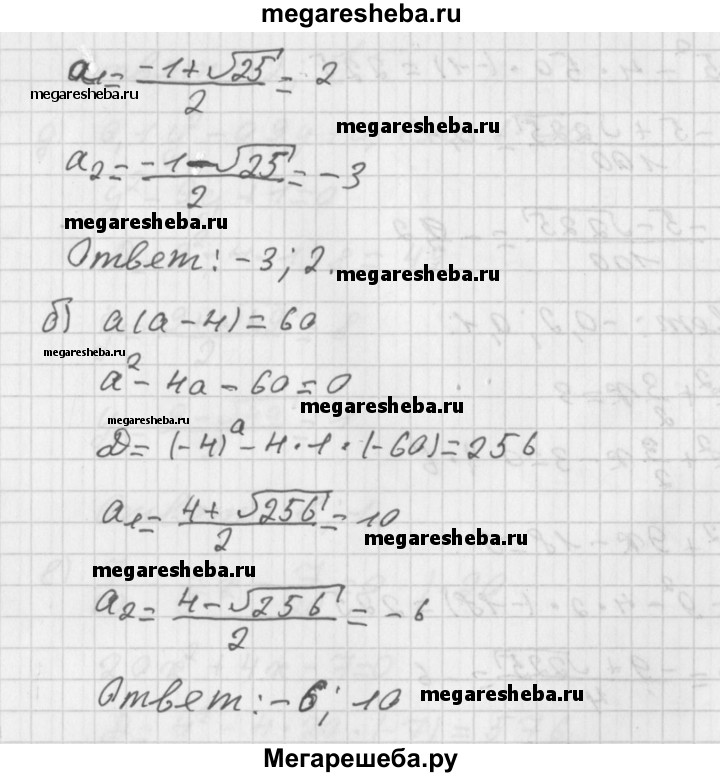 megaresheba.ru
a₁ = (-1+√25)/2 = 2
megaresheba.ru
megaresheba.ru
a₂ = (-1-√25)/2 = -3
megaresheba.ru
Ответ: -3; 2.
megaresheba.ru
б) a(a-4)=60
megaresheba.ru
a²-4a-60=0
megaresheba.ru
megaresheba.ru
D=(-4)²-4·1·(-60)=256
a₁ = (4+√256)/2 = 10
megaresheba.ru
megaresheba.ru
a₂ = (4-√256)/2 = -6
Ответ: -6; 10
megaresheba.ru
Мегарешеба.ру